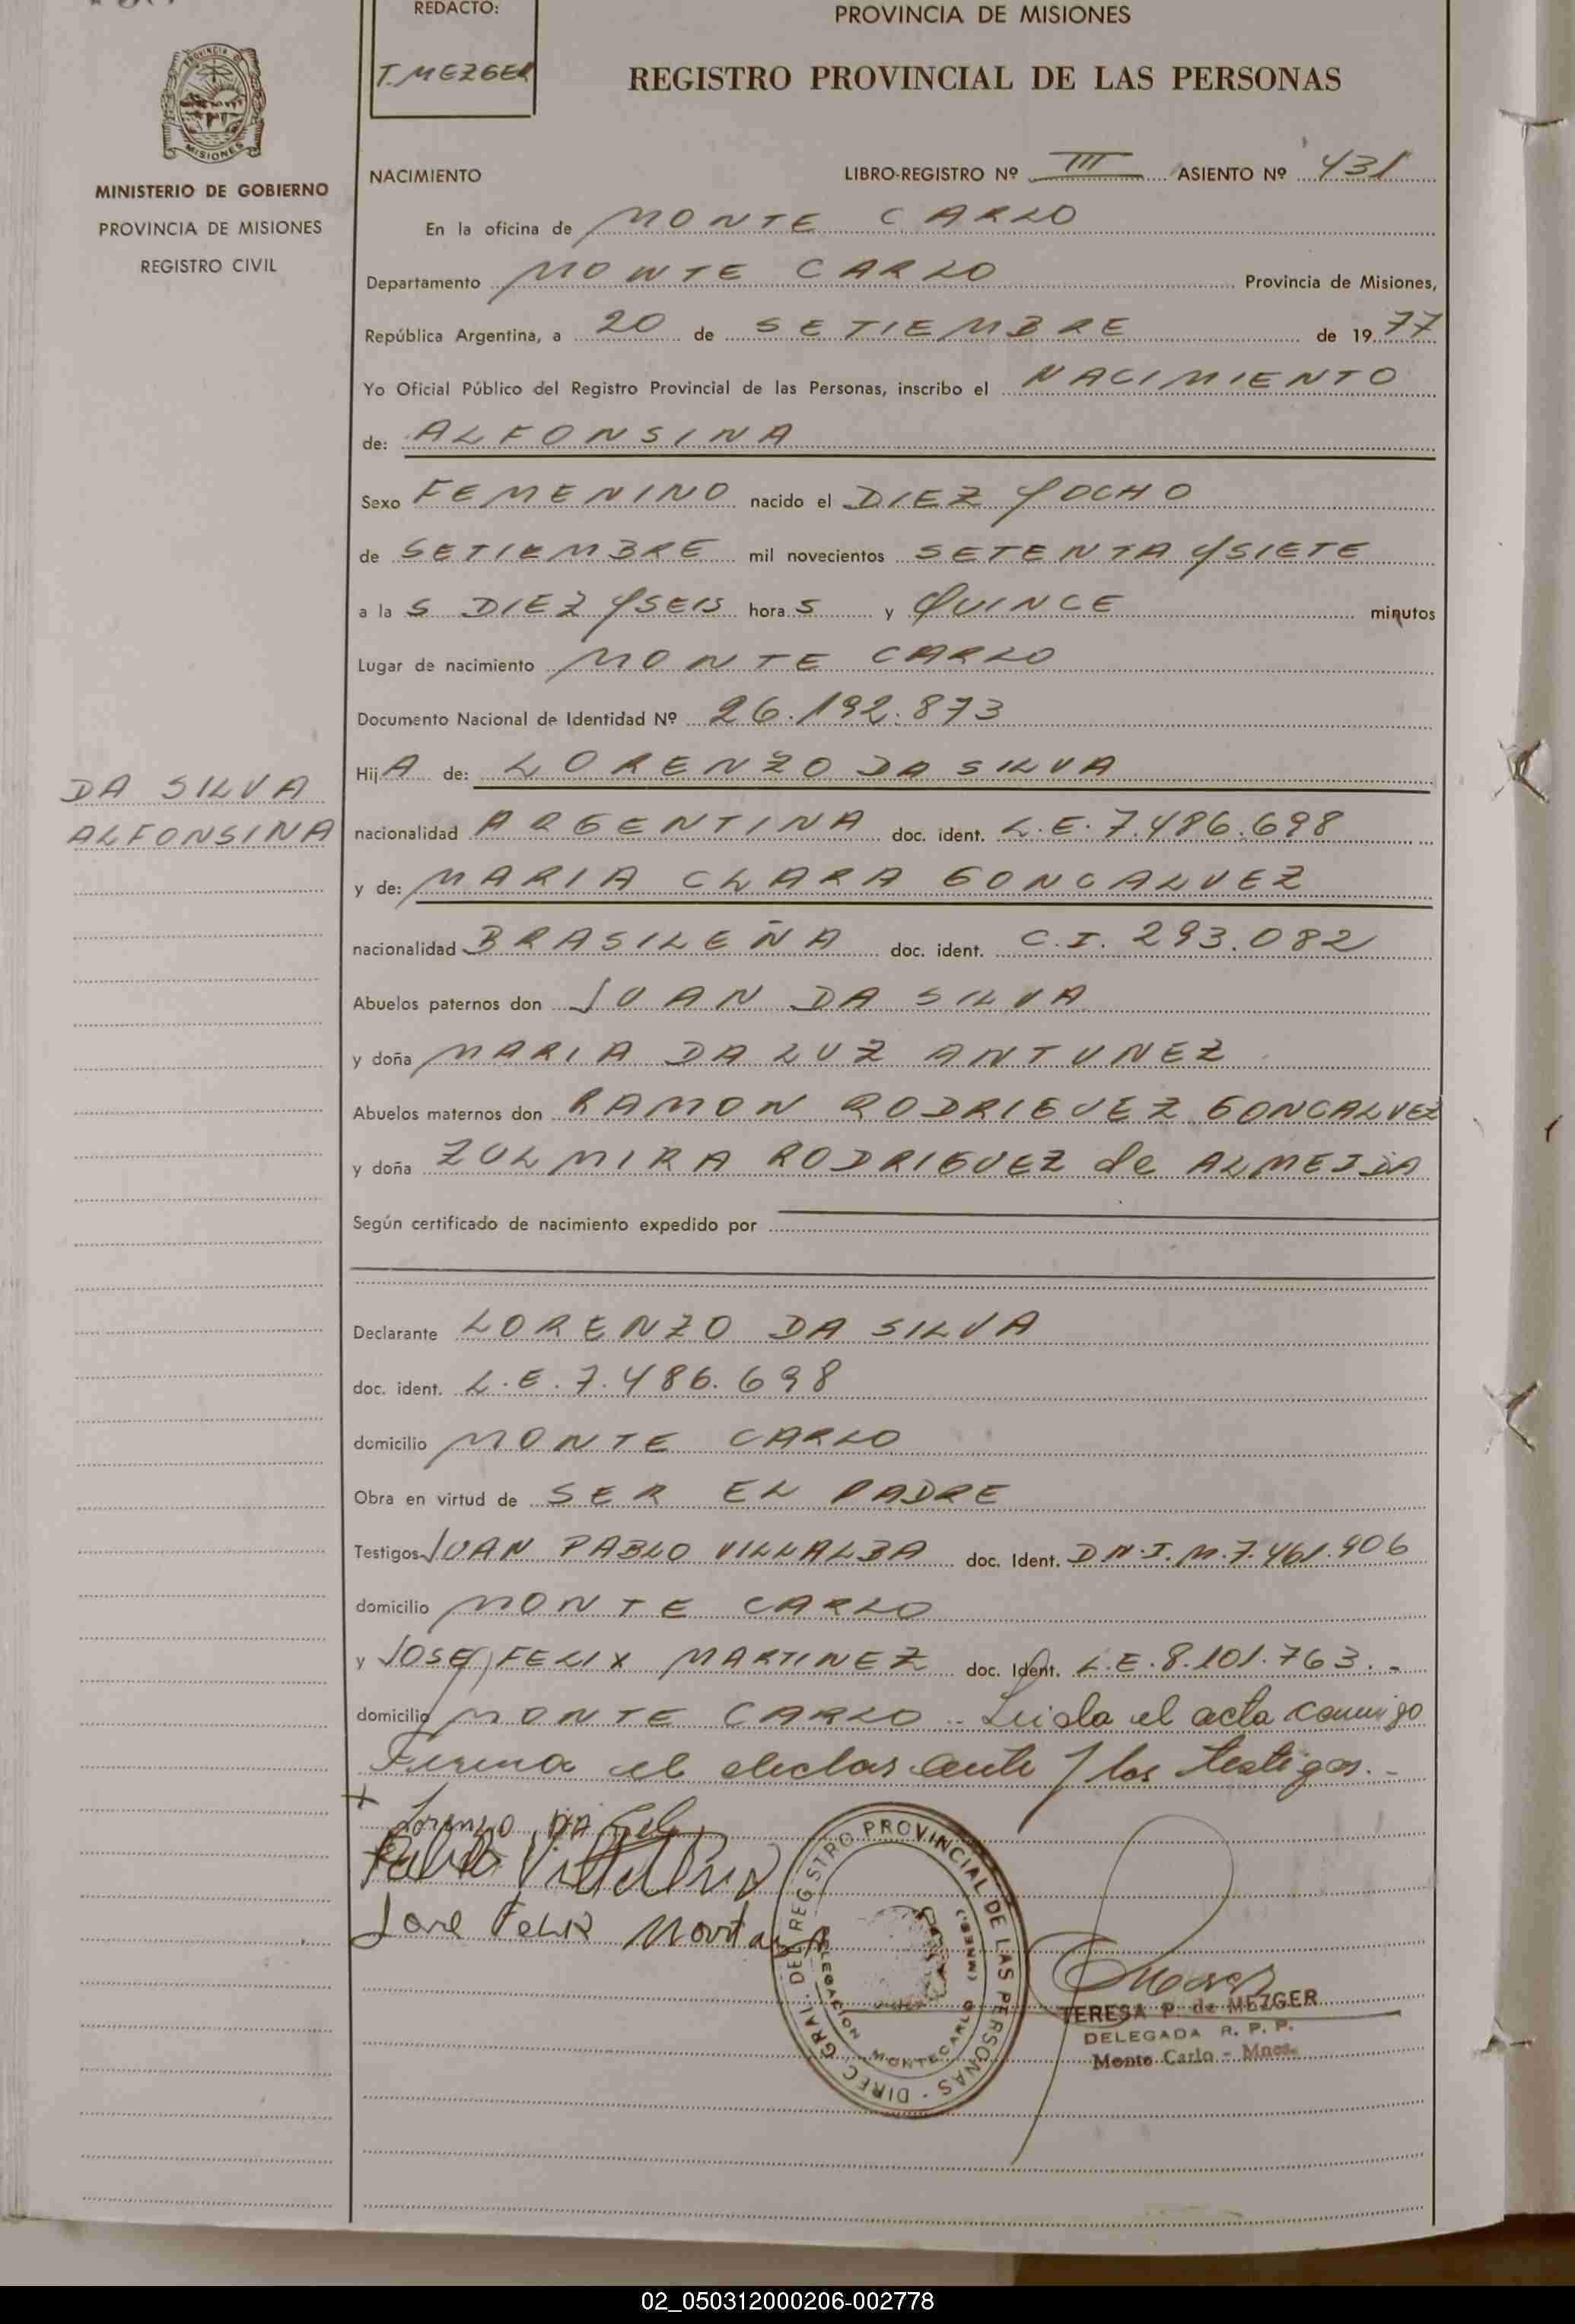 REDACTO:
T. MEZGER
PROVINCIA DE MISIONES
REGISTRO PROVINCIAL DE LAS PERSONAS
PROVINCIA DE
MISIONES
MINISTERIO DE GOBIERNO
PROVINCIA DE MISIONES
REGISTRO CIVIL
NACIMIENTO LIBRO-REGISTRO Nº III ASIENTO Nº 431
En la oficina de MONTE CARLO
Departamento MONTE CARLO Provincia de Misiones,
República Argentina, a 20 de SETIEMBRE de 1977
Yo Oficial Público del Registro Provincial de las Personas, inscribo el NACIMIENTO
de: ALFONSINA
Sexo FEMENINO nacido el DIEZ Y OCHO
de SETIEMBRE mil novecientos SETENTA Y SIETE
a las DIEZ Y SEIS horas y QUINCE minutos
Lugar de nacimiento MONTE CARLO
Documento Nacional de Identidad Nº 26.192.873
HijA de: LORENZO DA SILVA
DA SILVA
ALFONSINA
nacionalidad ARGENTINA doc. ident. L.E. 7.486.698
y de: MARIA CLARA GONCALVEZ
nacionalidad BRASILEÑA doc. ident. C.I. 293.082
Abuelos paternos don JUAN DA SILVA
y doña MARIA DA LUZ ANTUNEZ
Abuelos maternos don RAMON RODRIGUEZ GONCALVEZ
y doña ZULMIRA RODRIGUEZ de ALMEIDA
Según certificado de nacimiento expedido por
Declarante LORENZO DA SILVA
doc. ident. L.E. 7.486.698
domicilio MONTE CARLO
Obra en virtud de SER EL PADRE
Testigos JUAN PABLO VILLALBA doc. Ident. D.N.I.M. 7.461.906
domicilio MONTE CARLO
y JOSE FELIX MARTINEZ doc. Ident. L.E. 8.101.763.-
domicilio MONTE CARLO.- Leida el acta conmigo
Firma el declarante y los testigos.-
Lorenzo DA
Pablo Villalba
Jose Felix
DIREC. GRAL. DEL REGISTRO PROVINCIAL DE LAS PERSONAS
DELEGACION MONTECARLO (MNES.)
TERESA P. de MEZGER
DELEGADA R. P. P.
Monte Carlo - Mnes.
02_050312000206-002778